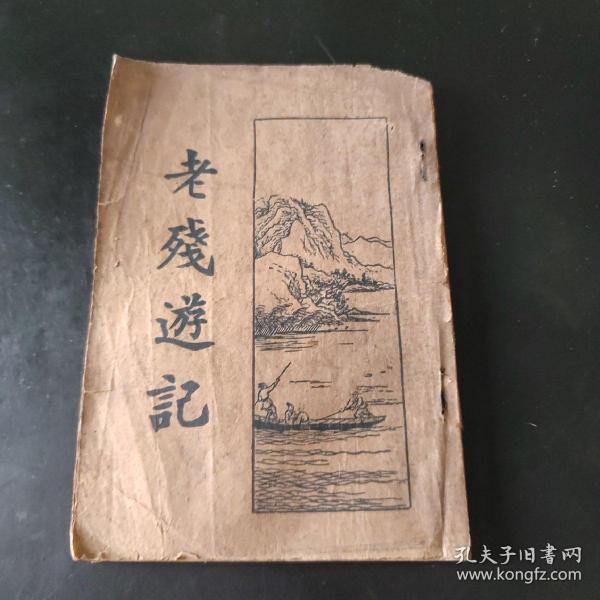 老殘遊記
孔夫子旧書网
www.kongfz.com